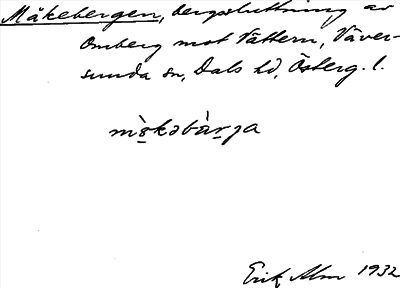 Måkebergen, bergsluttning av
Omberg mot Vättern, Väver-
sunda sn, Dals hd, Österg. l.
Erik Alm 1932